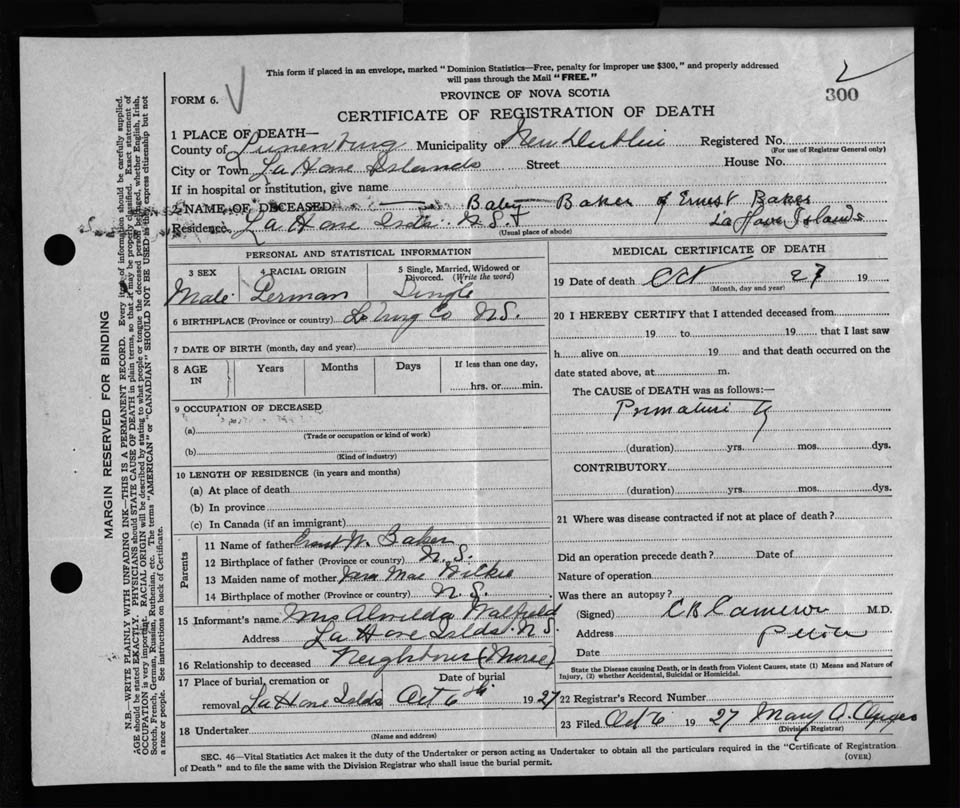 This form if placed in an envelope, marked "Dominion Statistics—Free, penalty for improper use $300," and properly addressed
will pass through the Mail "FREE."
FORM 6.
PROVINCE OF NOVA SCOTIA
300
CERTIFICATE OF REGISTRATION OF DEATH
1 PLACE OF DEATH—
County of Lunenburg Municipality of New Dublin Registered No.
(For use of Registrar General only)
City or Town La Have Islands Street House No.
If in hospital or institution, give name
2 NAME OF DECEASED Baby Baker of Ernest Baker
Residence La Have Islds N.S. La Have Islands
(Usual place of abode)
PERSONAL AND STATISTICAL INFORMATION
3 SEX 4 RACIAL ORIGIN 5 Single, Married, Widowed or
Divorced. (Write the word)
Male German Single
6 BIRTHPLACE (Province or country) Co N.S.
7 DATE OF BIRTH (month, day and year)
8 AGE IN Years Months Days If less than one day,
hrs. or min.
9 OCCUPATION OF DECEASED
(a)
(Trade or occupation or kind of work)
(b)
(Kind of industry)
10 LENGTH OF RESIDENCE (in years and months)
(a) At place of death
(b) In province
(c) In Canada (if an immigrant)
Parents
11 Name of father Ernest W. Baker
12 Birthplace of father (Province or country) N.S.
13 Maiden name of mother Mae Wilkie
14 Birthplace of mother (Province or country) N.S.
15 Informant's name Mrs Alvilda Walfield
Address La Have Islds. N.S.
16 Relationship to deceased Neighbour (Nurse)
17 Place of burial, cremation or Date of burial
removal La Have Islds Oct 6th 1927
18 Undertaker
(Name and address)
MEDICAL CERTIFICATE OF DEATH
19 Date of death Oct 27 19
(Month, day and year)
20 I HEREBY CERTIFY that I attended deceased from
19 to 19 that I last saw
h alive on 19 and that death occurred on the
date stated above, at m.
The CAUSE of DEATH was as follows:—
Prematurity
(duration) yrs. mos. dys.
CONTRIBUTORY
(duration) yrs. mos. dys.
21 Where was disease contracted if not at place of death?
Did an operation precede death? Date of
Nature of operation
Was there an autopsy?
(Signed) C B Cameron M.D.
Address
Date
State the Disease causing Death, or in death from Violent Causes, state (1) Means and Nature of
Injury, (2) whether Accidental, Suicidal or Homicidal.
22 Registrar's Record Number
23 Filed Oct 6 1927 Mary A.
(Division Registrar)
SEC. 46—Vital Statistics Act makes it the duty of the Undertaker or person acting as Undertaker to obtain all the particulars required in the "Certificate of Registration
of Death" and to file the same with the Division Registrar who shall issue the burial permit.
(OVER)
MARGIN RESERVED FOR BINDING
N.B.—WRITE PLAINLY WITH UNFADING INK—THIS IS A PERMANENT RECORD. Every item of information should be carefully supplied.
AGE should be stated EXACTLY. PHYSICIANS should STATE CAUSE OF DEATH in plain terms, so that it may be properly classified. Exact statement of
OCCUPATION is very important. RACIAL ORIGIN will be described by stating to what people or tongue the deceased person belonged, whether English, Irish,
Scotch, French, German, Russian, Ruthenian, etc. The terms "AMERICAN" or "CANADIAN" SHOULD NOT BE USED as they express citizenship but not
a race or people. See instructions on back of Certificate.